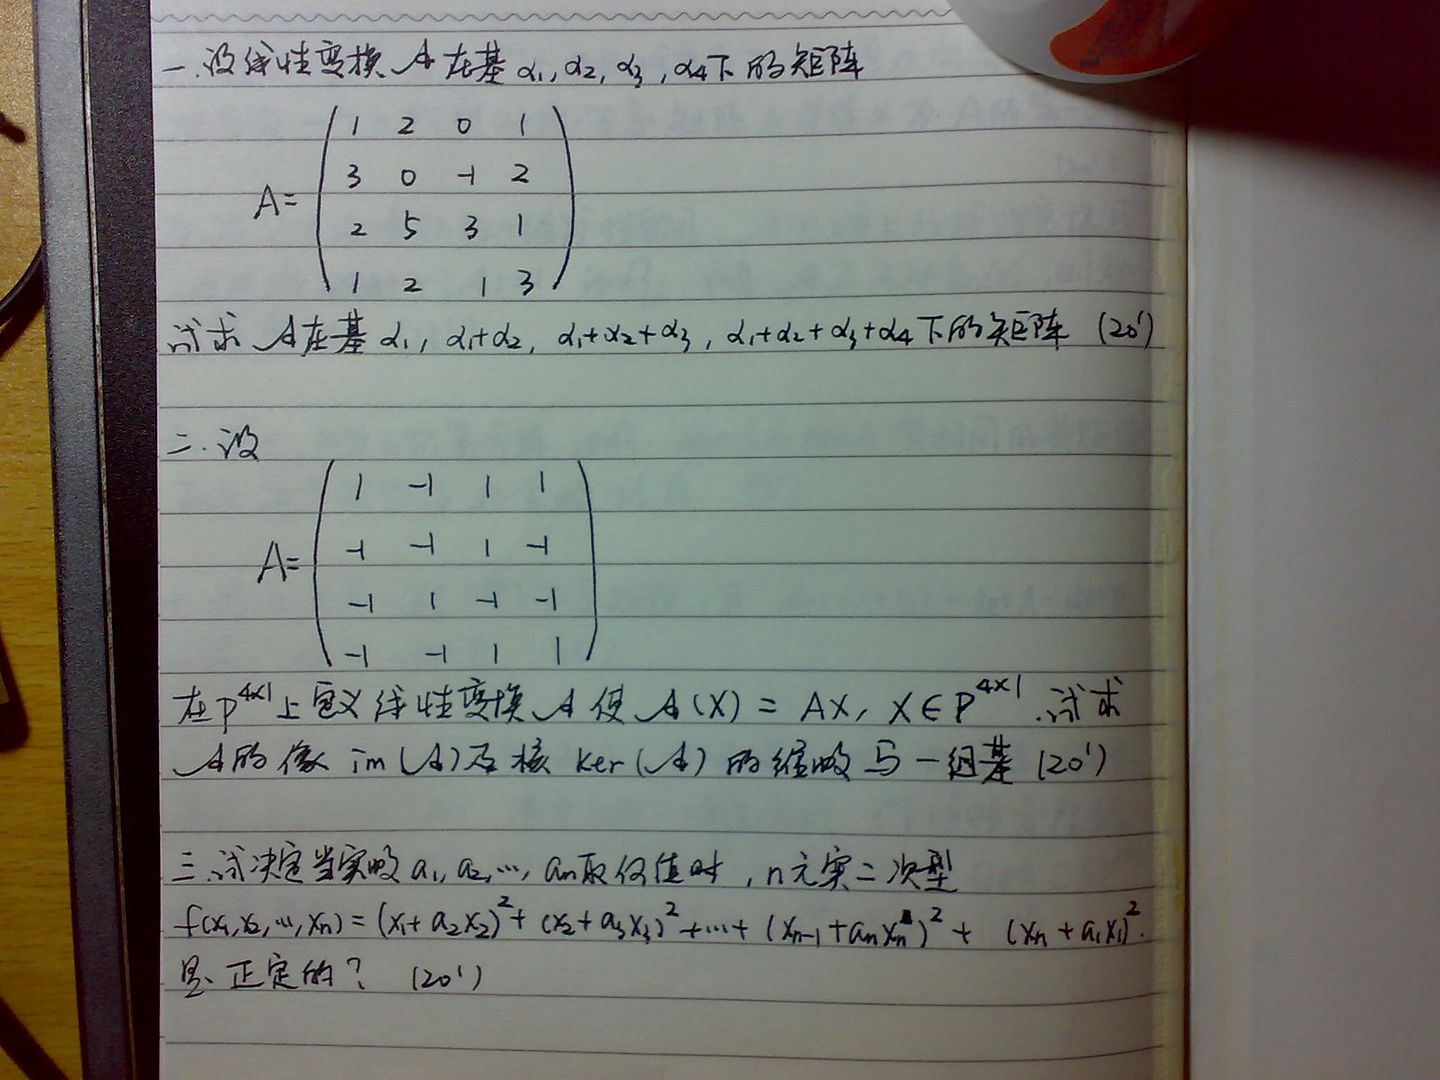 一.设线性变换 A 在基 α₁,α₂,α₃,α₄下的矩阵
1 2 0 1
3 0 -1 2
A=
2 5 3 1
1 2 1 3
试求 A在基 α₁, α₁+α₂, α₁+α₂+α₃, α₁+α₂+α₃+α₄下的矩阵 (20')
二.设
1 -1 1 1
-1 -1 1 -1
A=
-1 1 -1 -1
-1 -1 1 1
在P⁴ˣ¹上定义线性变换 A 使 A(X) = AX, X∈P⁴ˣ¹.试求
A的像 im(A)及核 Ker(A) 的维数与一组基 (20')
三.试决定当实数 a₁,a₂,…,aₙ取何值时,n元实二次型
f(x₁,x₂,…,xₙ)=(x₁+a₂x₂)²+(x₂+a₃x₃)²+…+(xₙ₋₁+aₙxₙ)²+(xₙ+a₁x₁)².
是正定的? (20')